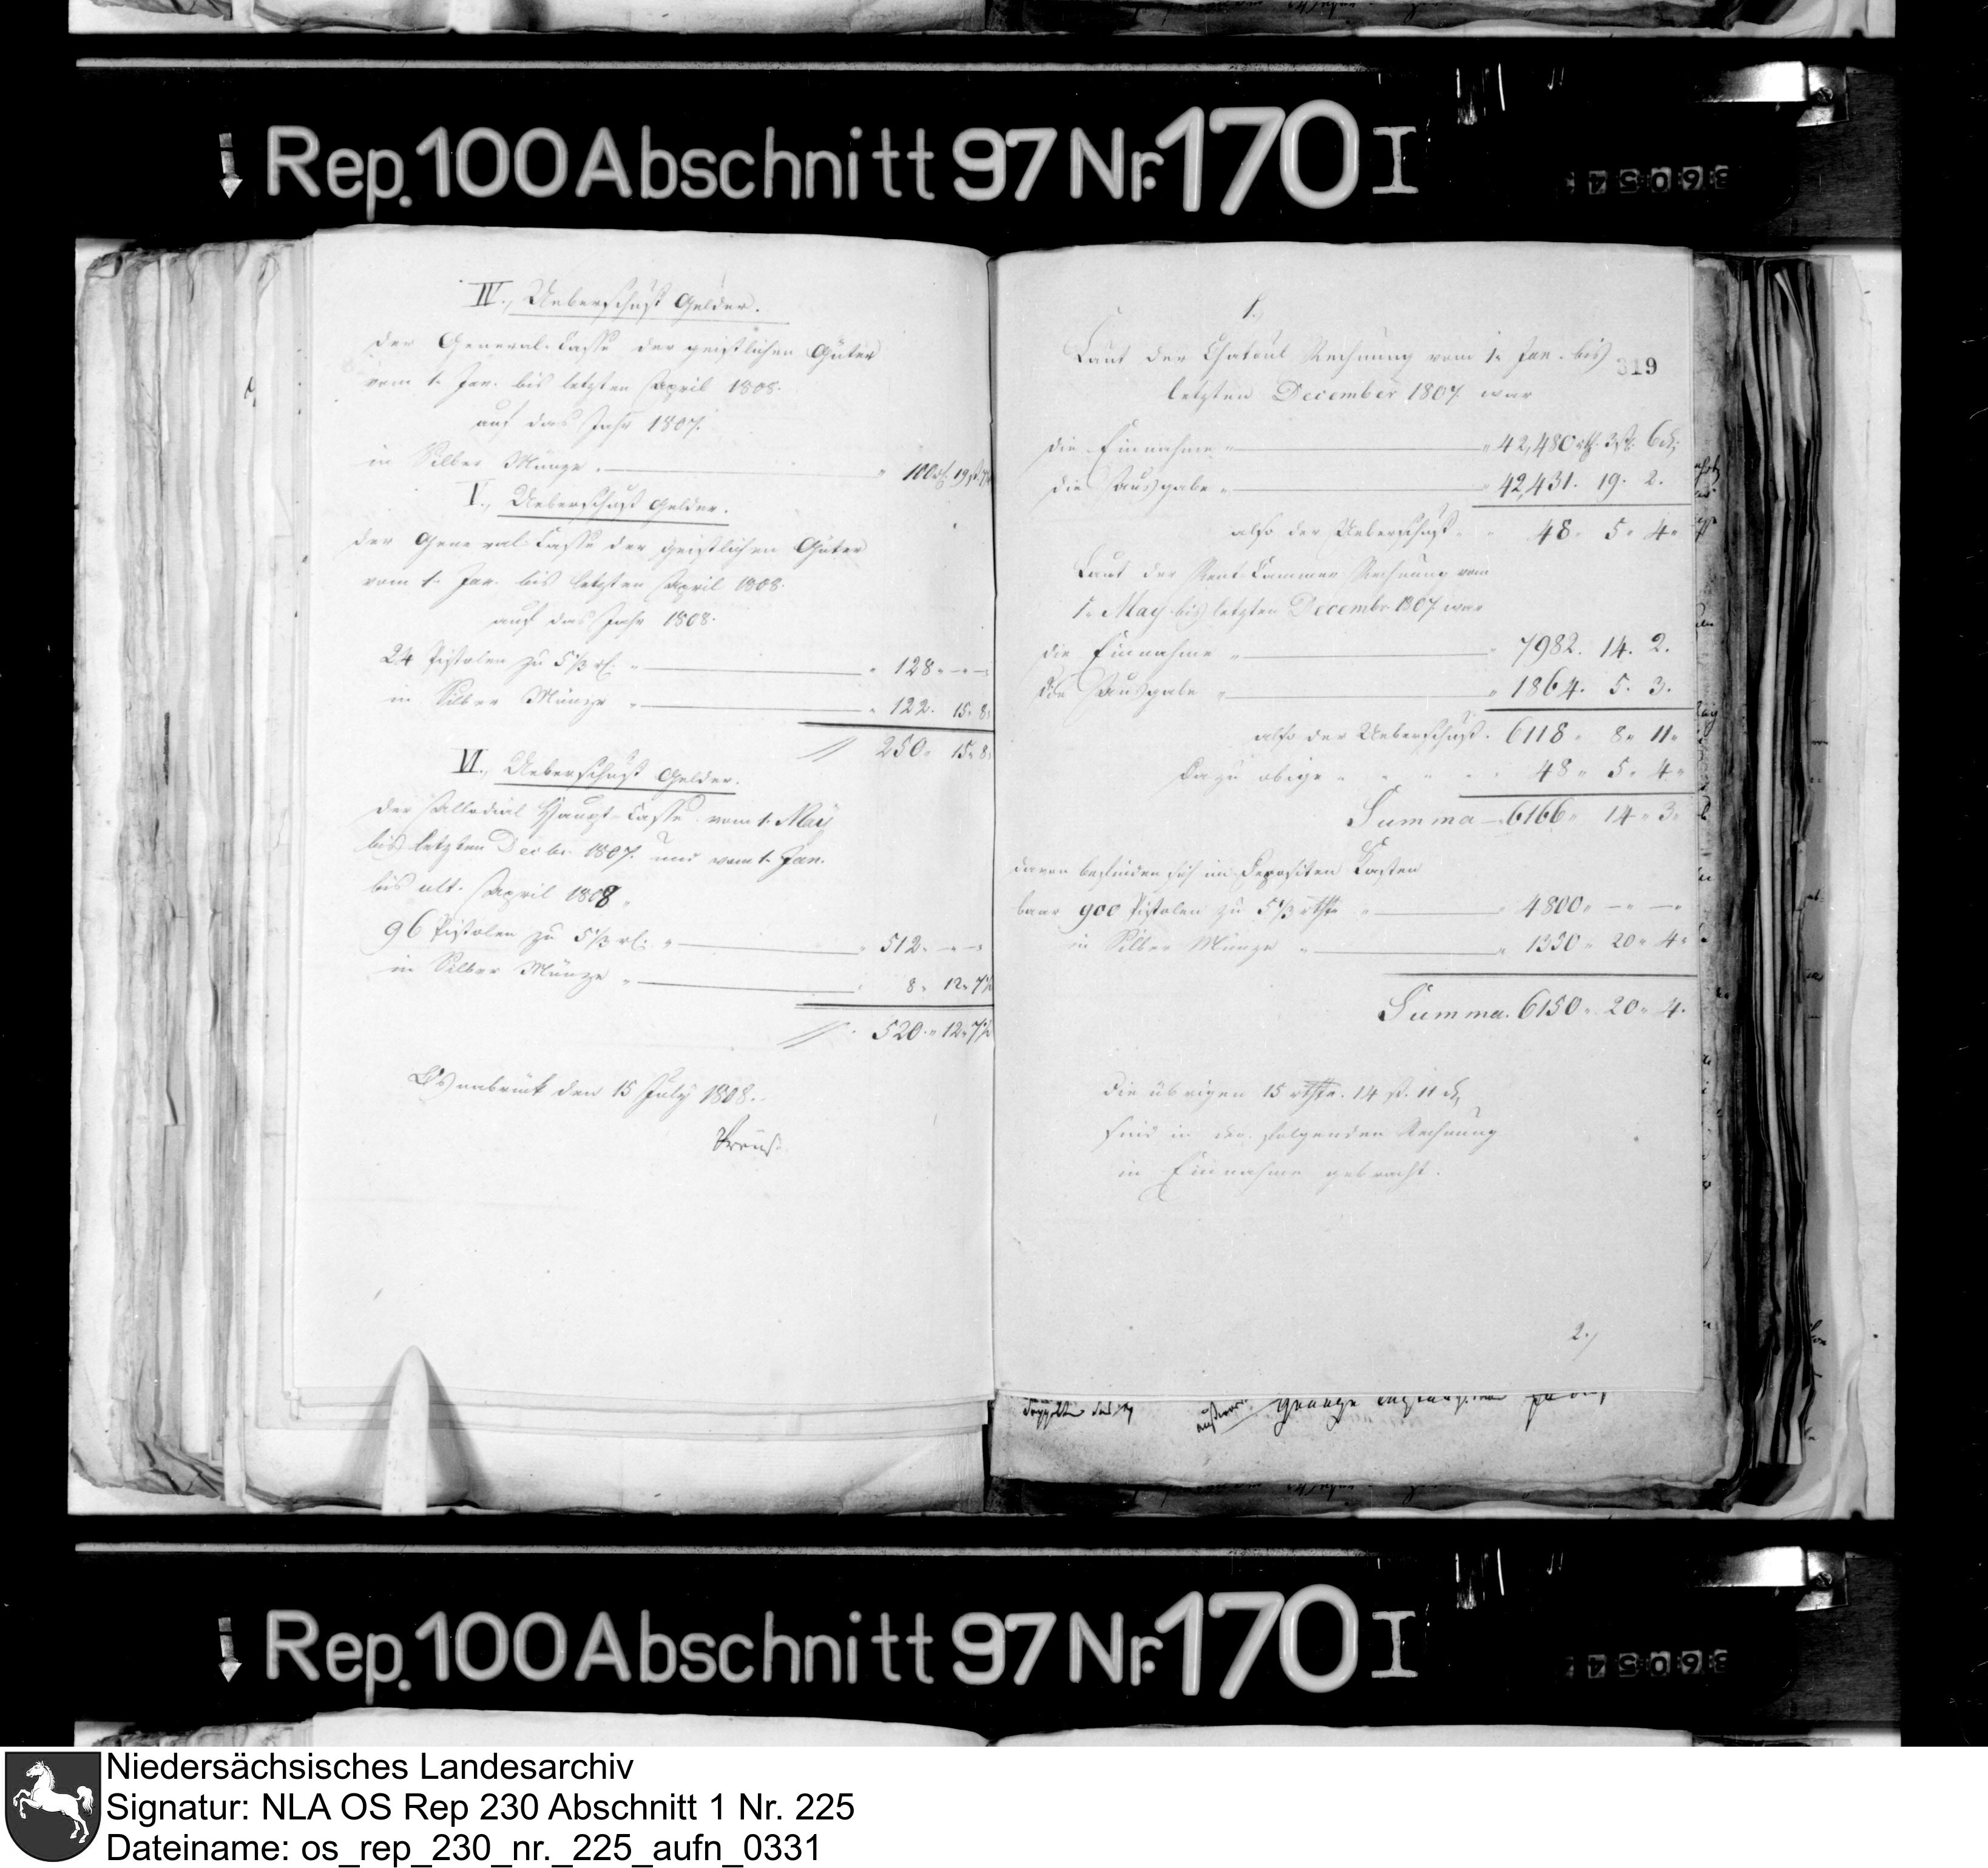 Rep. 100 Abschnitt 97 Nr. 170 I
IV., Ueberschuß Gelder.
der General-Casse der geistlichen Güter
vom 1. Jan. bis letzten April 1808.
auf das Jahr 1807.
in Silber Münze. " 100 rt. 19 ß
V., Ueberschuß Gelder.
der General-Casse der geistlichen Güter
vom 1. Jan. bis letzten April 1808.
auf das Jahr 1808.
24 Pistolen zu 5 1/3 rt. " " 128 " — " —
in Silber Münze " " 122. 15. 8.
// 250 " 15 " 8
VI., Ueberschuß Gelder.
der Allodial Haupt-Casse vom 1. May
bis letzten Decbr. 1807. und vom 1. Jan.
bis ult. April 1808.
96 Pistolen zu 5 1/3 rt. " " 512 " — " —
in Silber Münze " 8 " 12 " 7 1/2
// 520 " 12 " 7 1/2
Osnabrück den 15 July 1808.
Preuß.
319
1.
Laut der Chatoul Rechnung vom 1. Jan. bis
letzten December 1807. war
die Einnahme " " 42,480 rth. 3 ß. 6 d.
die Ausgabe " " 42,431. 19. 2.
also der Ueberschuß " " 48 " 5 " 4 "
Laut der Rent Cammer Rechnung vom
1. May bis letzten Decembr. 1807 war
die Einnahme " " 7982. 14. 2.
die Ausgabe " " 1864. 5. 3.
also der Ueberschuß. 6118 " 8 " 11 "
Dazu obige " " " " 48 " 5 " 4 "
Summa 6166 " 14 " 3 "
davon befinden sich im Depositen Kasten
baar 900 Pistolen zu 5 1/3 rthlr " " 4800 " — " — "
in Silber Münze " " 1350 " 20 " 4 "
Summa. 6150 " 20 " 4.
Die übrigen 15 rthlr. 14 ß. 11 d.
sind in der folgenden Rechnung
in Einnahme gebracht.
2./
Rep. 100 Abschnitt 97 Nr. 170 I
Niedersächsisches Landesarchiv
Signatur: NLA OS Rep 230 Abschnitt 1 Nr. 225
Dateiname: os_rep_230_nr._225_aufn_0331